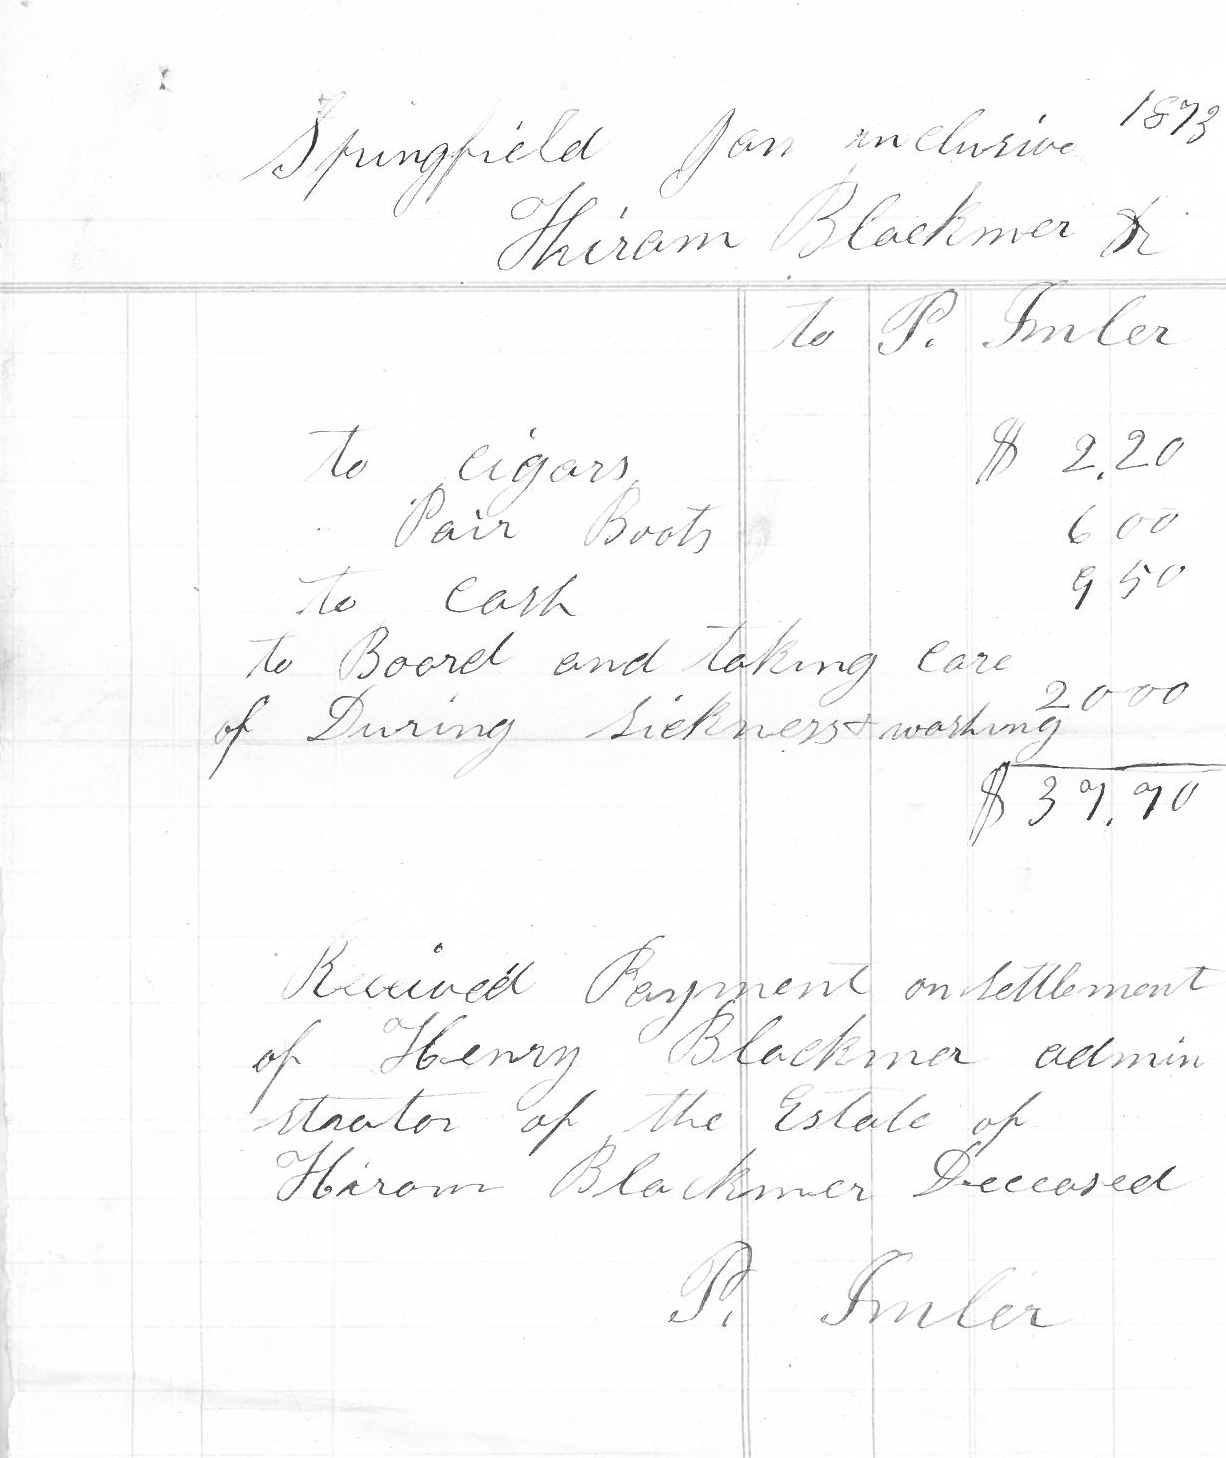 Springfield Jan inclusive 1873
Hiram Blackmer Dr
to P. Imler
to cigars $ 2.20
Pair Boots 6 00
to cash 9 50
to Board and taking care
of During sickness + washing 20 00
$ 37.70
Received Payment on settlement
of Henry Blackmer admin
strator of the Estate of
Hiram Blackmer Deceased
P. Imler